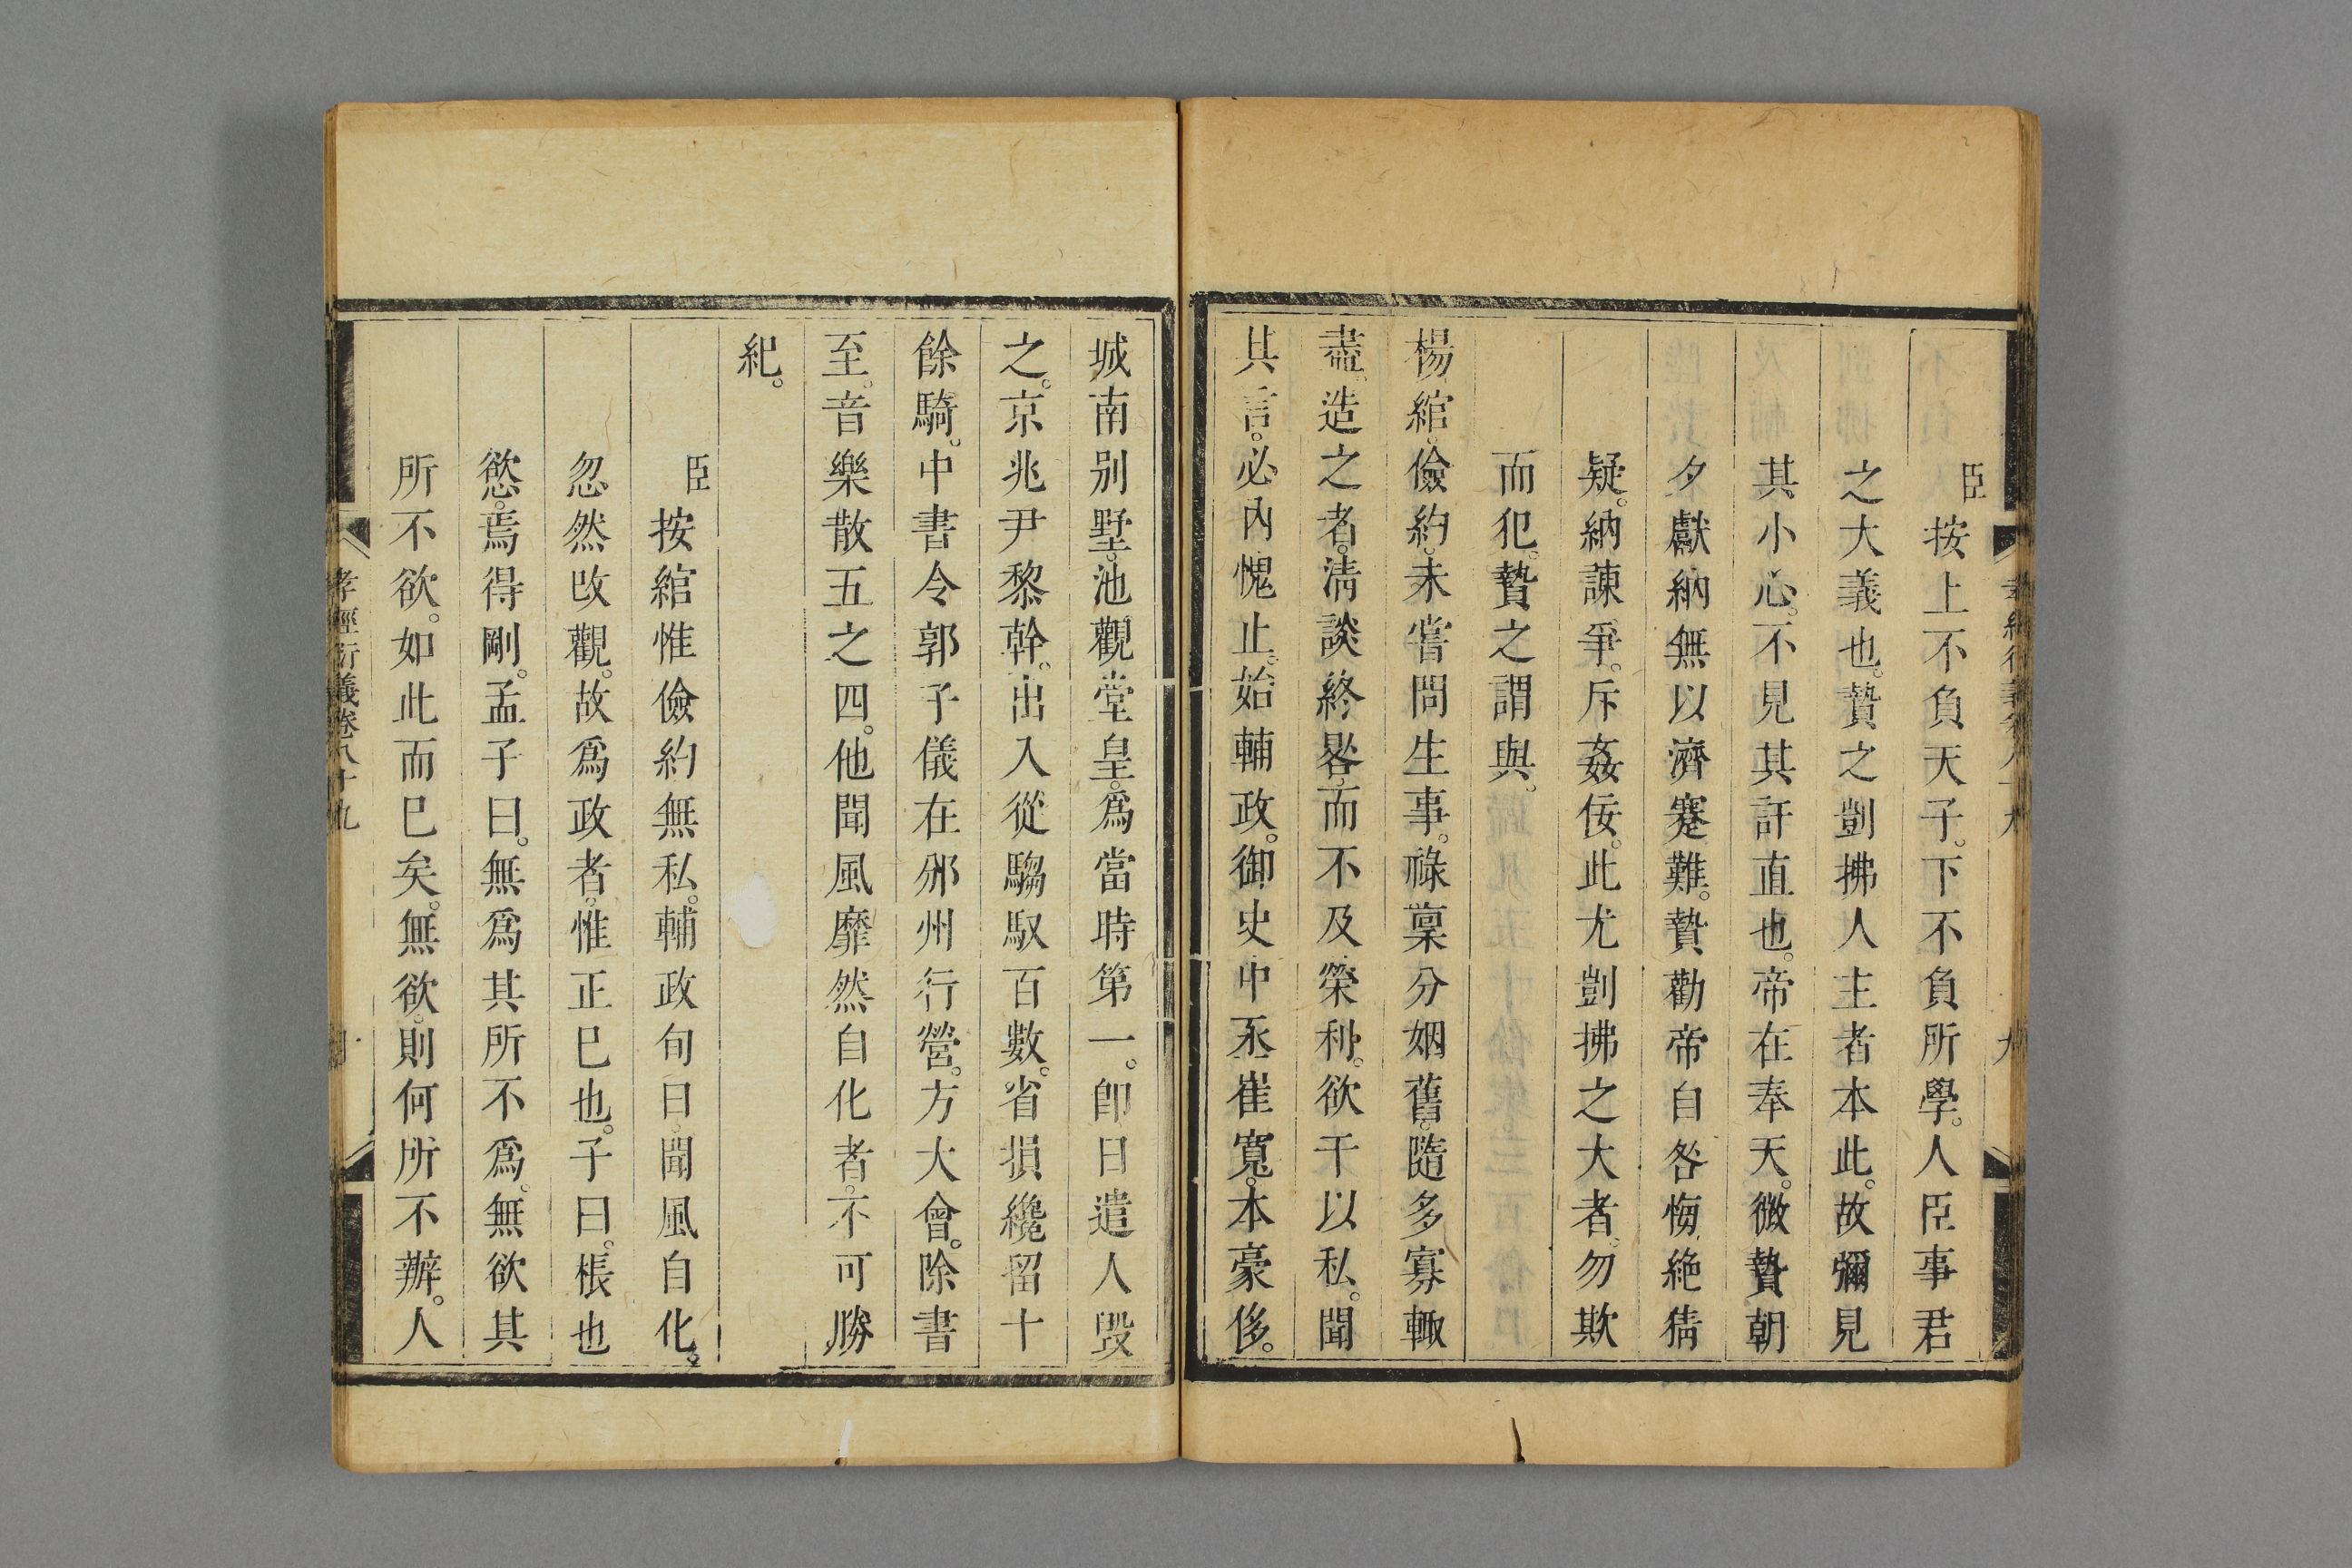 臣按上不負天子。下不負所學。人臣事君
之大義也。贄之剴拂人主者本此。故彌見
其小心。不見其訐直也。帝在奉天。微贄朝
夕獻納無以濟蹇難。贄勸帝自咎悔絶猜
疑。納諫爭。斥姦佞。此尤剴拂之大者。勿欺
而犯。贄之謂與。
楊綰。儉約。未嘗問生事。祿稟分姻舊。隨多寡輒
盡。造之者。清談終晷。而不及榮利。欲干以私。聞
其言。必內愧止。始輔政。御史中丞崔寬。本豪侈。
城南別墅。池觀堂皇。爲當時第一。卽日遣人毁
之。京兆尹黎幹。出入從騶馭百數。省損纔留十
餘騎。中書令郭子儀在邠州行營。方大會。除書
至。音樂散五之四。他聞風靡然自化者。不可勝
紀。
臣按綰惟儉約無私。輔政旬日。聞風自化。
忽然改觀。故爲政者。惟正巳也。子曰。棖也
慾。焉得剛。孟子曰。無爲其所不爲。無欲其
所不欲。如此而巳矣。無欲。則何所不辦。人
孝經衍義卷八十九